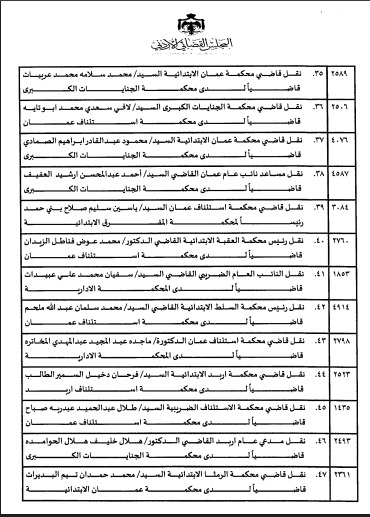 المجلس القضائي الأردني
٢٥٨٩ ٣٥. نقل قاضي محكمة عمان الابتدائية السيد/ محمد سلامه محمد عربيات
قاضياً لدى محكمة الجنايات الكبرى
٢٥٠٦ ٣٦. نقل قاضي محكمة الجنايات الكبرى السيد/ لافي سعدي محمد ابو تايه
قاضياً لدى محكمة استئناف عمان
٤٠٧٦ ٣٧. نقل قاضي محكمة عمان الابتدائية السيد/ محمود عبدالقادر ابراهيم الصمادي
قاضياً لدى محكمة الجنايات الكبرى
٤٥٨٧ ٣٨. نقل مساعد نائب عام عمان القاضي السيد/ أحمد عبدالمحسن ارشيد العفيف
قاضياً لدى محكمة الجنايات الكبرى
٣٠٨٤ ٣٩. نقل قاضي محكمة استئناف عمان السيد/ ياسين سليم صلاح بني حمد
رئيساً لمحكمة المفرق الابتدائية
٢٧٦٠ ٤٠. نقل رئيس محكمة العقبة الابتدائية القاضي الدكتور/ محمد عوض فناطل الزيدان
قاضياً لدى محكمة استئناف عمان
١٨٥٣ ٤١. نقل النائب العام الضريبي القاضي السيد/ سفيان محمد علي عبيدات
قاضياً لدى المحكمة الادارية
٤٩١٤ ٤٢. نقل رئيس محكمة السلط الابتدائية القاضي السيد/ محمد سلمان عبد الله ملحم
قاضياً لدى محكمة استئناف عمان
٢٧٩٨ ٤٣. نقل قاضي محكمة استئناف عمان الدكتورة/ ماجده عبد المجيد عبدالمهدي المخاتره
قاضياً لدى المحكمة الادارية
٢٥٢٣ ٤٤. نقل قاضي محكمة اربد الابتدائية السيد/ فرحان دخيل السمير الطالب
قاضياً لدى محكمة استئناف اربد
١٤٣٥ ٤٥. نقل قاضي محكمة الاستئناف الضريبية السيد/ طلال عبدالحميد عبدربه صباح
قاضياً لدى محكمة استئناف عمان
٢٤٩٣ ٤٦. نقل مدعي عام اربد القاضي الدكتور/ هلال خليف هلال الحوامده
قاضياً لدى محكمة الجنايات الكبرى
٢٣٦١ ٤٧. نقل قاضي محكمة الرمثا الابتدائية السيد/ محمد حمدان تيم البديرات
قاضياً لدى محكمة عمان الابتدائية